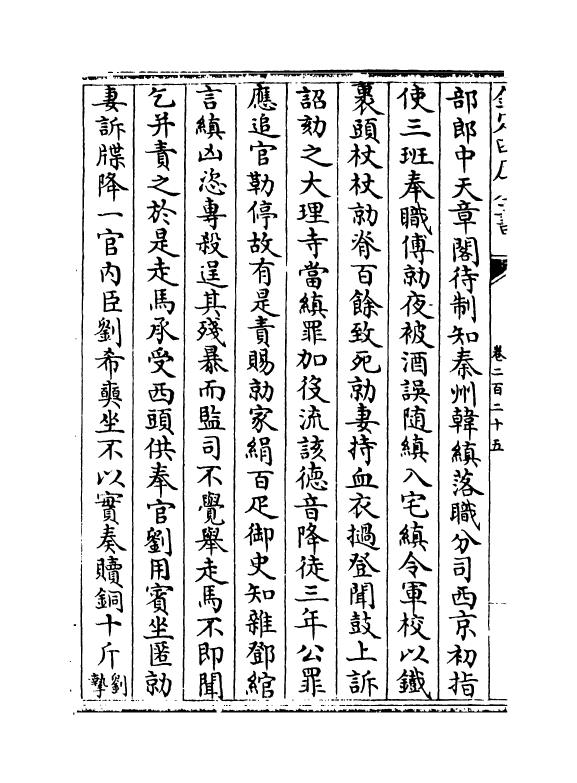 卷二百二十五
部郎中天章閣待制知秦州韓縝落職分司西京初指
使三班奉職傅勍夜被酒誤隨縝入宅縝令軍校以鐵
裹頭杖杖勍脊百餘致死勍妻持血衣撾登聞鼓上訴
詔劾之大理寺當縝罪加役流該德音降徒三年公罪
應追官勒停故有是責賜勍家絹百疋御史知雜鄧綰
言縝凶恣專殺逞其殘暴而監司不覺舉走馬不即聞
乞并責之於是走馬承受西頭供奉官劉用賓坐匿勍
妻訴牒降一官内臣劉希奭坐不以實奏贖銅十斤劉摯